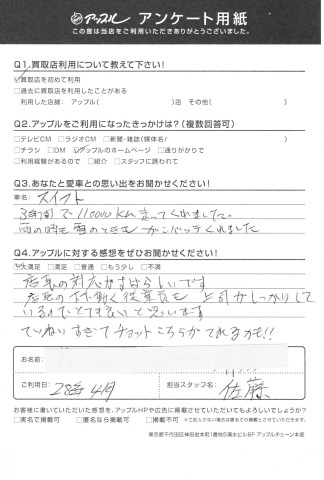 アップル アンケート用紙
この度は当店をご利用いただきありがとうございました。
Q1.買取店利用について教えて下さい!
☑買取店を初めて利用
□過去に買取店を利用したことがある
利用した店舗: アップル( )店 その他( )
Q2.アップルをご利用になったきっかけは?(複数回答可)
□テレビCM □ラジオCM □新聞・雑誌(媒体名/ )
□チラシ □DM ☑アップルのホームページ □通りがかりで
□利用経験があるので □紹介 □スタッフに誘われて
Q3.あなたと愛車との思い出をお聞かせください!
車名: スイフト
3年間で11000km走ってくれました。
雨の時も雪のときも くれました
Q4.アップルに対する感想をぜひお聞かせください!
☑大満足 □満足 □普通 □もう少し □不満
店長の対応がすばらしいです
店長の 従業員も 上司がしっかりして
いるのでとても良いと思います
ていねいすぎてチョットこちらがてれるかも!!
お名前:
ご利用日: 28年4月
担当スタッフ名: 佐藤
お客様に書いていただいた感想を、アップルHPや広告に掲載させていただいてもよろしいでしょうか?
□実名で掲載可 □匿名なら掲載可 □掲載不可 ※ご記入がない場合は匿名での掲載とさせていただきます。
東京都千代田区神田岩本町1番地5清水ビル8F アップルチェーン本部